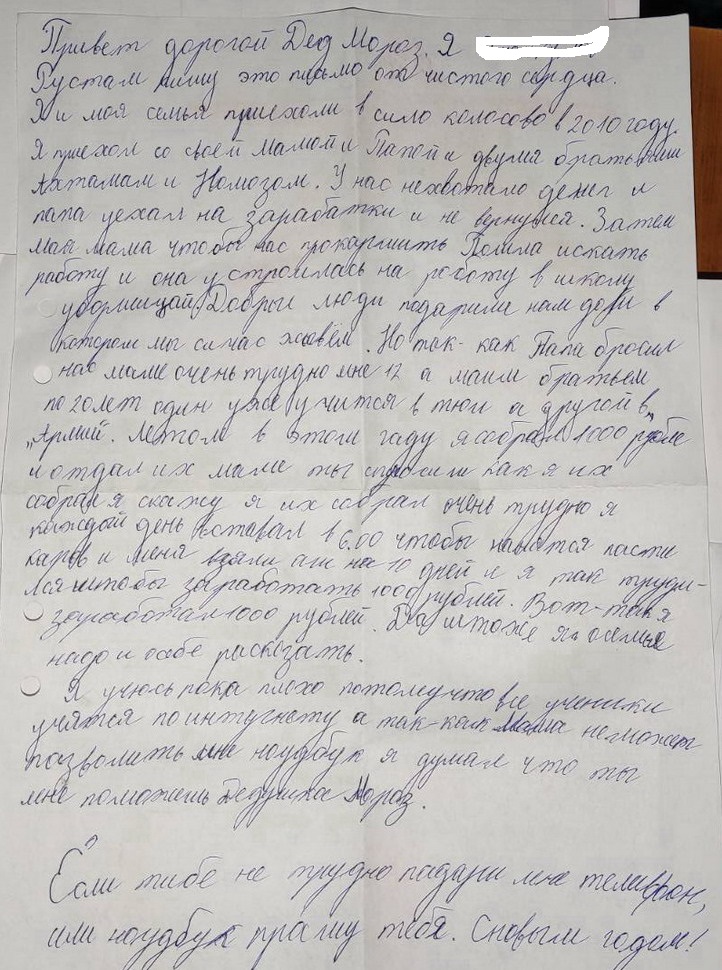 Привет дорогой Дед Мороз. Я
Рустам пишу это письмо от чистого сердца.
Я и моя семья приехоли в сило колосово в 2010 году.
Я приехол со своей Мамой и Папой и двумя братьями
Ахтамам и Номозом. У нас нехвотало денег и
папа уехал на зарабатки и не вернулся. Затем
май мама чтобы нас прокармить Пошла искать
работу и она устроилась на роботу в школу
уборщицай. Добрыи люди подарили нам дом в
котором мы сичас живём. Но так-как Папа бросил
нас маме очень трудно мне 12 а маим братьем
по 20 лет один уже учится в тюи а другой в
"Армий. Летом в этом гаду я собрал 1000 рубле
и отдал их маме ты спросиш как я их
собрал я скажу я их собрал очень трудно я
каждый день вставал в 6.00 чтобы нанятся пасти
каров и меня взяли аш на 10 дней и я так труди-
лся штобы заработать 1000 рублей. Вот-так я
заработал 1000 рублей. Да штоже я о семье
надо и о себе расказать.
Я учюсь пока плохо потомучто все ученики
учятся по интурнету а так-как Мама неможет
пазволить мне ноудбук я думал что ты
мне поможешь Дедушка Мороз.
Если тибе не трудно падари мне телифон,
или ноудбук прашу тебя. Сновым годом!